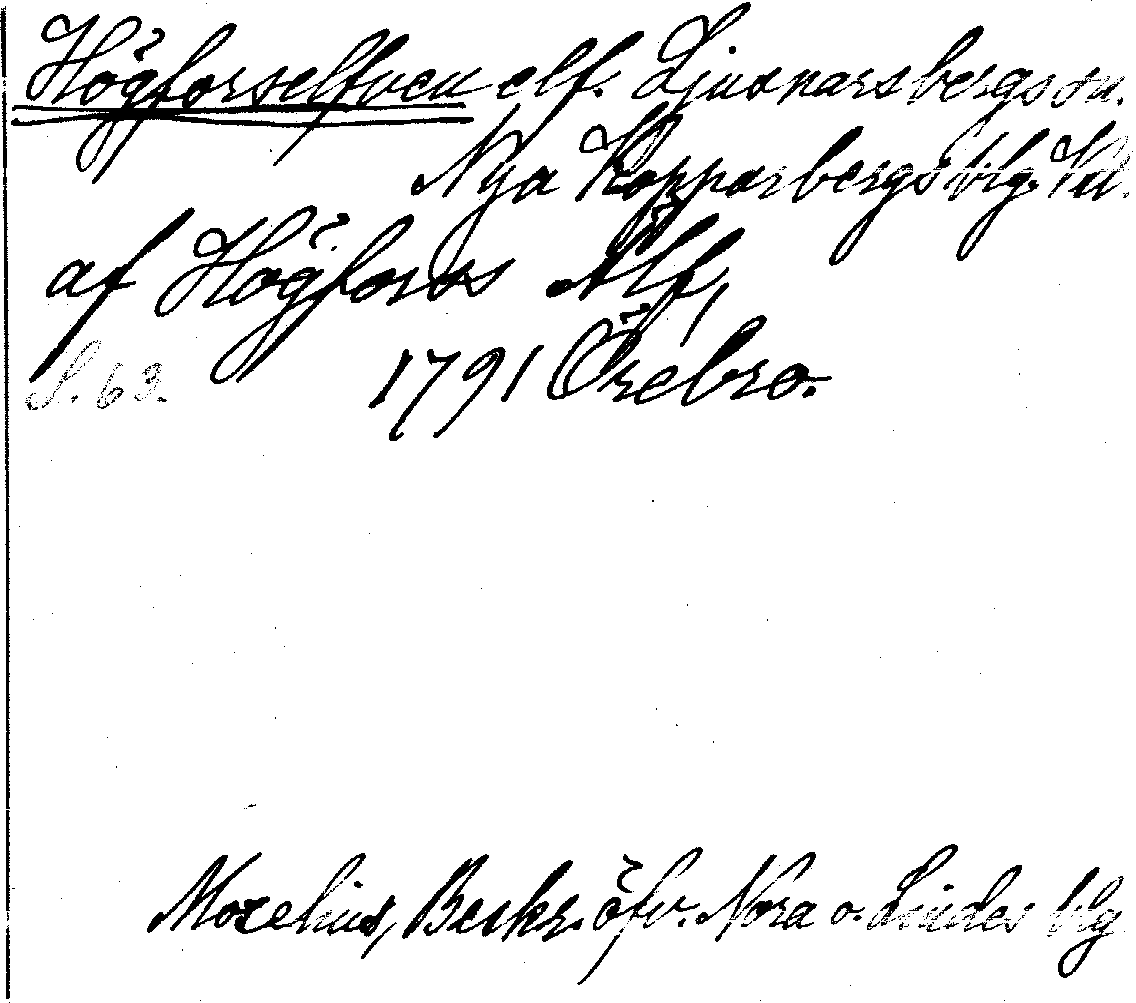 Högforselfven elf. Ljusnarsbergs sn.
Nya Kopparbergs blg. Vml.
af Högforss Älf,
S. 63. 1791 Örebro.
Morelius, Beskr. öfv. Nora o. Lindes blg